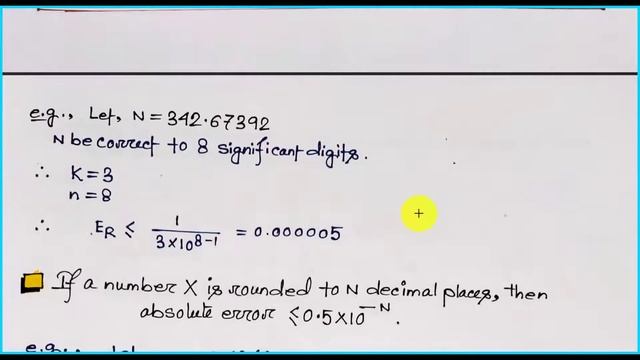 e.g., Let, N = 342.67392
N be correct to 8 significant digits.
∴ K = 3
n = 8
∴ E_R ≤ 1/(3×10^(8-1)) = 0.000005
If a number X is rounded to N decimal places, then
absolute error ≤ 0.5×10^(-N).